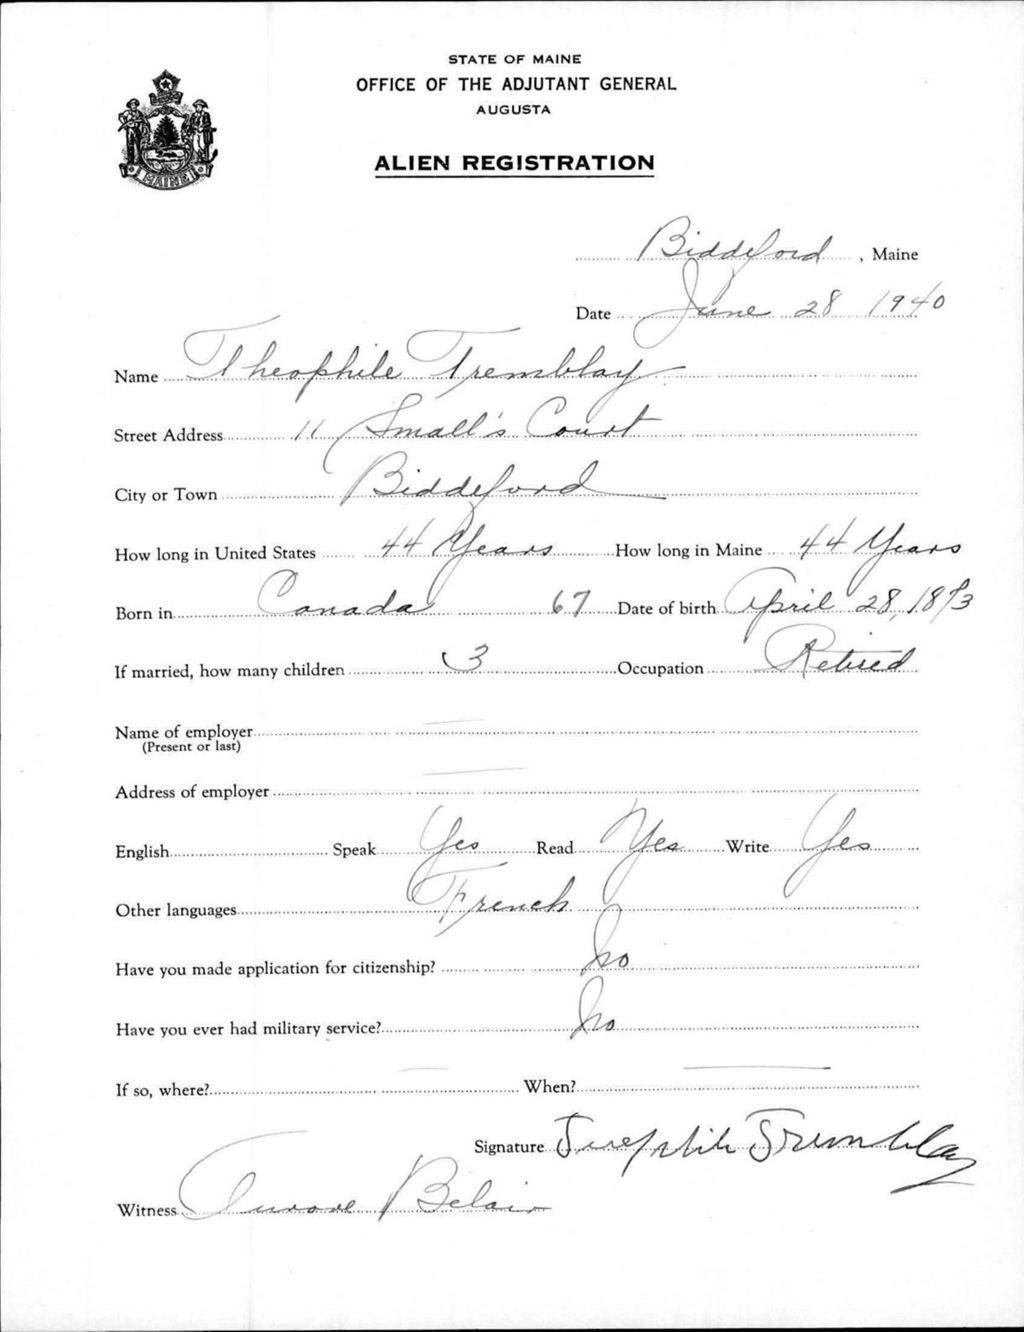 STATE OF MAINE
OFFICE OF THE ADJUTANT GENERAL
AUGUSTA
ALIEN REGISTRATION
MAINE
Biddeford, Maine
Date June 28 1940
Name Theophile Tremblay
Street Address 11 Small's Court
City or Town Biddeford
How long in United States 44 Years How long in Maine 44 Years
Born in Canada 67 Date of birth April 28, 1873
If married, how many children 3 Occupation Retired
Name of employer
(Present or last)
Address of employer
English Speak Yes Read Yes Write Yes
Other languages French
Have you made application for citizenship? No
Have you ever had military service? No
If so, where? When?
Signature Tremblay
Witness Aurore Belair